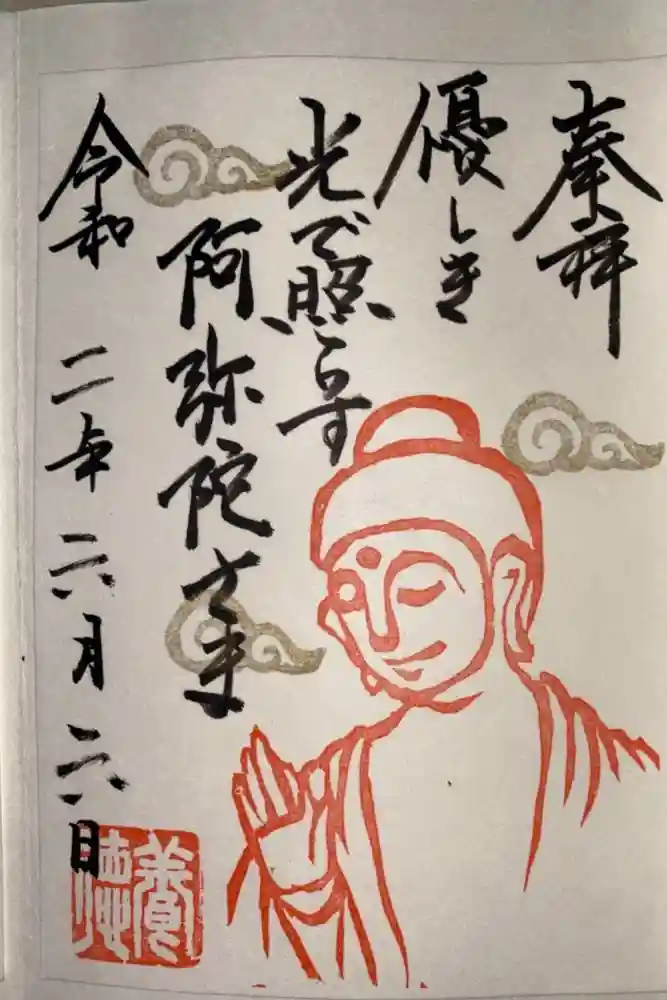 奉拝
優しき
光で照らす
阿弥陀さま
令和 二年 六月 六日
養徳